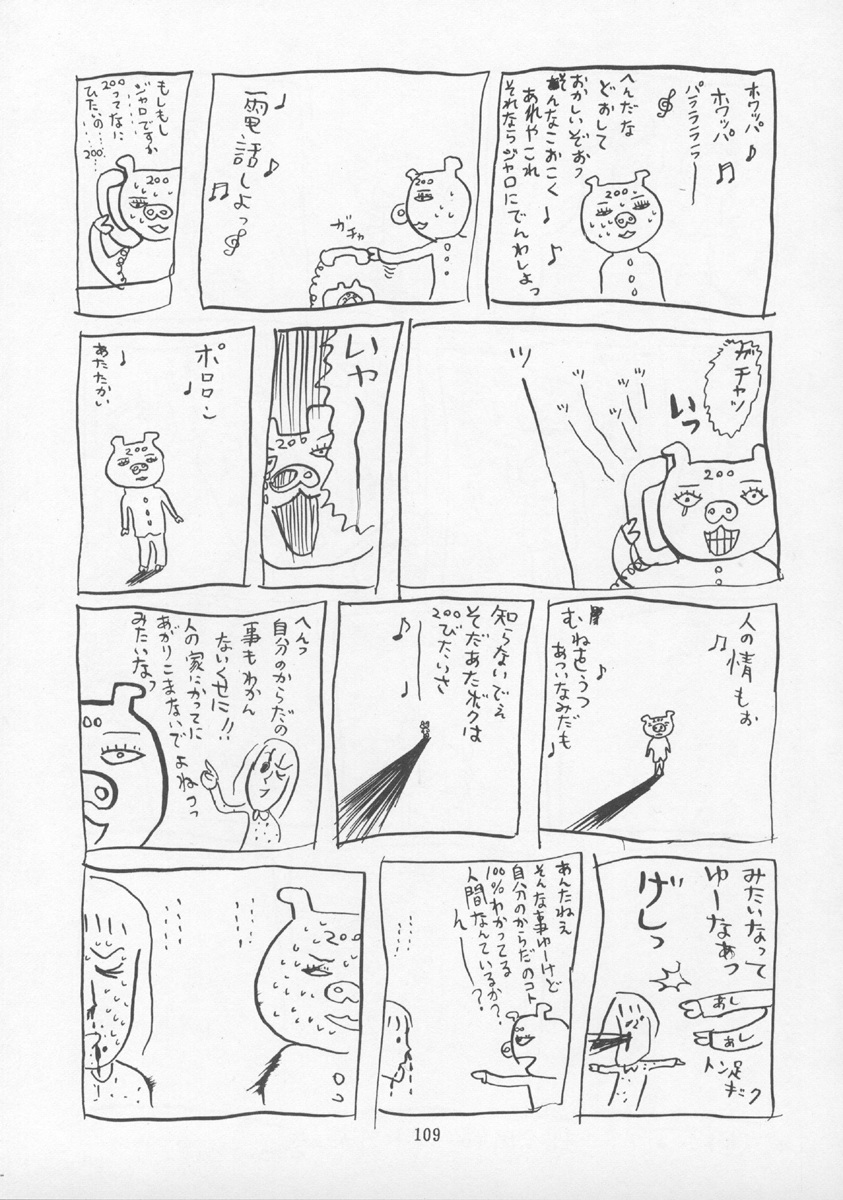 ホワッパ♪
ホワッパ♬
パララランラー
へんだな
どおして
おかしいぞおっ
そんなこおこく
あれやこれ
それならジャロにでんわしよっ
200
♪電話しよっ
ガチャ
200
もしもし
ジャロですか
200ってなに
ひたいの……200…
200
ガチャッ
いっ
ツ
ツ
ツ
ツ
ツ
200
いやーー
200
ポロロン♪
あたたかい♪
200
人の情もぉ♫
むねをうつ
あついなみだも♪
知らないでぇ
そだあたボクは
200びたいさ
♪
へんっ
自分のからだの
事もわかん
ないくせに!!
人の家にかってに
あがりこまないでよねっっ
みたいなっ
00
みたいなって
ゆーなあっ
げしっ
あし
あし
トン足キック
あんたねえ
そんな事ゆーけど
自分のからだのコト
100%わかってる
人間なんているか?
ん――?
200
109